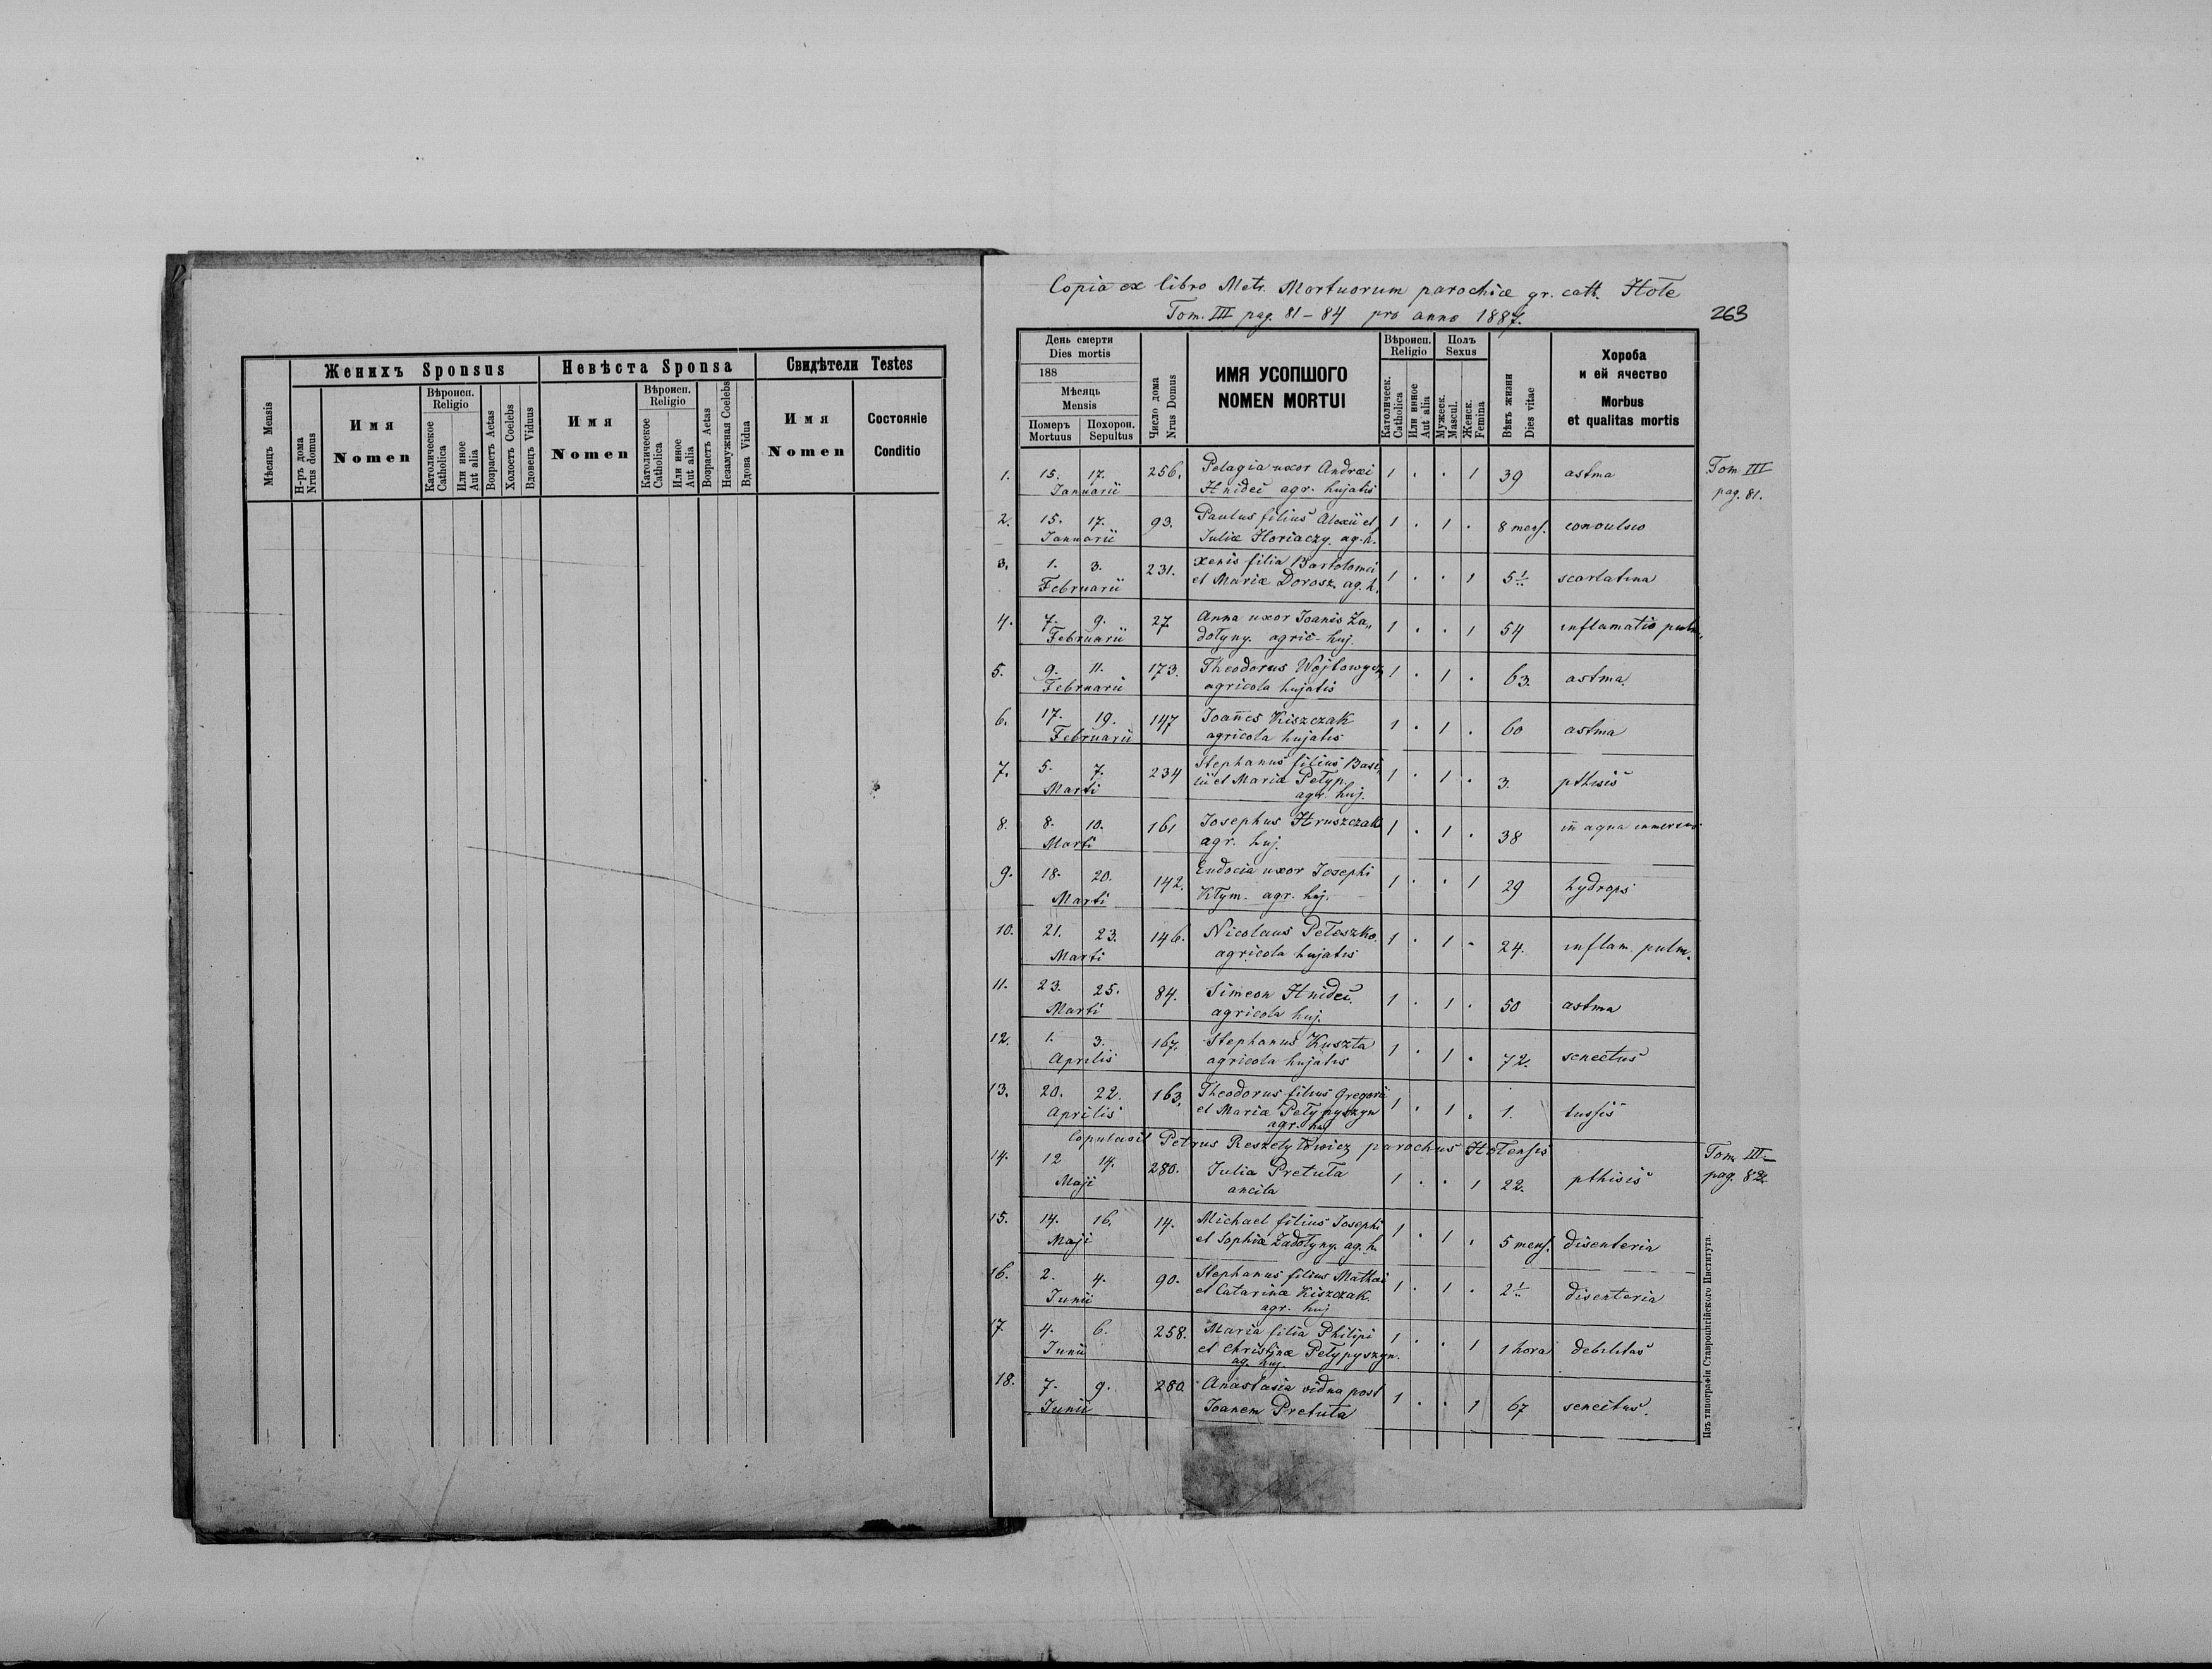 Женихъ Sponsus
Невѣста Sponsa
Свидѣтели Testes
Мѣсяцъ Mensis
Н-ръ дома
Nrus domus
Имя
Nomen
Вѣроисп.
Religio
Католическое
Catholica
Или иное
Aut alia
Возрастъ Aetas
Холостъ Coelebs
Вдовецъ Viduus
Имя
Nomen
Вѣроисп.
Religio
Католическое
Catholica
Или иное
Aut alia
Возрастъ Aetas
Незамужная Coelebs
Вдова Vidua
Имя
Nomen
Состояніе
Conditio
Copia ex libro Metr. Mortuorum parochiæ gr. cath. Hołe
Tom. III pag. 81 – 84 pro anno 1887.
263
День смерти
Dies mortis
188
Мѣсяць
Mensis
Померъ
Mortuus
Похорон.
Sepultus
Число дома
Nrus Domus
ИМЯ УСОПШОГО
NOMEN MORTUI
Вѣроисп.
Religio
Католическ.
Catholica
Или инное
Aut alia
Полъ
Sexus
Мужеск.
Mascul.
Женск.
Femina
Вѣкъ жизни
Dies vitae
Хороба
и ей ячество
Morbus
et qualitas mortis
1. 15. 17. 256. Pelagia uxor Andræi 1 . . 1 39 astma Tom III
Januarii Hnidei agr. hujatis pag. 81.
2. 15. 17. 93. Paulus filius Alexii et 1 . 1 . 8 mens. convulsio
Januarii Juliæ Horiaczy. ag. h.
3. 1. 3. 231. Xenis filia Bartolomei 1 . . 1 5 1/.. scarlatina
Februarii et Mariæ Dorosz. ag. h.
4. 7. 9. 27. Anna uxor Joanis Za„ 1 . . 1 54 inflamatio pulm.
Februarii dołyny. agric. huj.
5. 9. 11. 173. Theodorus Wojtowycz 1 . 1 . 63. astma.
Februarii agricola hujatis
6. 17. 19. 147 Joañes Kiszczak 1 . 1 . 60 astma
Februarii agricola hujatis
7. 5. 7. 234 Stephanus filius Basi„ 1 . 1 . 3. pthisis
Marti lii et Mariæ Pełyp.
agr. huj.
8. 8. 10. 161 Josephus Hruszczak 1 . 1 . 38 in aqua immersus
Marti agr. huj.
9. 18. 20. 142. Eudocia uxor Josephi 1 . . 1 29 hydrops
Marti Kłym. agr. huj.
10. 21. 23. 146. Nicolaus Peleszko. 1 . 1 . 24. inflam. pulm.
Marti agricola hujatis
11. 23. 25. 84. Simeon Hnidei. 1 . 1 . 50 astma
Marti agricola huj.
12. 1. 3. 167. Stephanus Kuszta 1 . 1 . 72. senectus
Aprilis agricola hujatis
13. 20. 22. 163. Theodorus filius Gregorii 1 . 1 . 1. tussis
Aprilis et Mariæ Pełypyszyn
agr. huj
Copulavit Petrus Reszetyłowicz parochus Hołensis
14. 12 14. 280. Julia Pretuła 1 . . 1 22. pthisis Tom III
Maji ancila pag. 82
15. 14. 16. 14. Michael filius Josephi 1 . 1 . 5 mens. disenteria
Maji et Sophiæ Zadołyny. ag. h.
16. 2. 4. 90. Stephanus filius Mathæi 1 . 1 . 2 1/.. disenteria
Junii et Catarinæ Kiszczak.
agr. huj
17. 4. 6. 258. Maria filia Philipi 1 . . 1 1 hora debilitas
Junii et Christinæ Pełypyszyn.
ag. huj.
18. 7. 9. 280. Anastasia vidua post 1 . . 1 67 senectus.
Junii Joanem Pretuła
Изъ типографіи Ставропигійского Института.